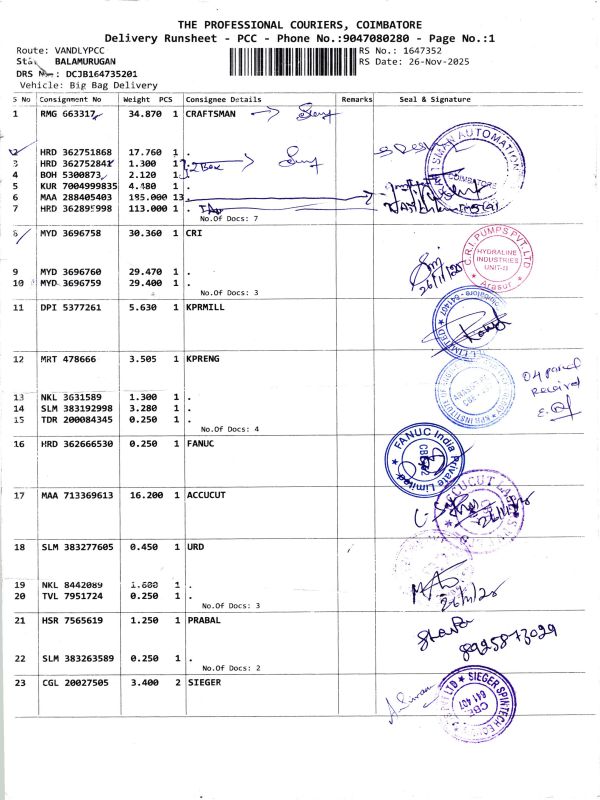 THE PROFESSIONAL COURIERS, COIMBATORE
Delivery Runsheet - PCC - Phone No.:9047080280 - Page No.:1
Route: VANDLYPCC RS No.: 1647352
BALAMURUGAN RS Date: 26-Nov-2025
DRS No: DCJB164735201
Vehicle: Big Bag Delivery
S No Consignment No Weight PCS Consignee Details Remarks Seal & Signature
1 RMG 663317 34.870 1 CRAFTSMAN
2 HRD 362751868 17.760 1 .
3 HRD 362752841 1.300 1 . 2 Box
4 BOH 5300873 2.120 1 .
5 KUR 7004999835 4.480 1 .
6 MAA 288405403 195.000 13 .
7 HRD 362895998 113.000 1 .
No.Of Docs: 7
CRAFTSMAN AUTOMATION
COIMBATORE
8 MYD 3696758 30.360 1 CRI
9 MYD 3696760 29.470 1 .
10 MYD 3696759 29.400 1 .
No.Of Docs: 3
26/11/25
C.R.I. PUMPS PVT. LTD
HYDRALINE
INDUSTRIES
UNIT-II
★ Arasur ★
11 DPI 5377261 5.630 1 KPRMILL
LIMITED
Coimbatore - 641407
12 MRT 478666 3.505 1 KPRENG
13 NKL 3631589 1.300 1 .
14 SLM 383192998 3.280 1 .
15 TDR 200084345 0.250 1 .
No.Of Docs: 4
KPR INSTITUTE OF
04 parcel
Received
16 HRD 362666530 0.250 1 FANUC
FANUC India Private Limited
17 MAA 713369613 16.200 1 ACCUCUT
18 SLM 383277605 0.450 1 URD
19 NKL 8442089 1.600 1 .
20 TVL 7951724 0.250 1 .
No.Of Docs: 3
26/11/25
21 HSR 7565619 1.250 1 PRABAL
8925873029
22 SLM 383263589 0.250 1 .
No.Of Docs: 2
23 CGL 20027505 3.400 2 SIEGER
SIEGER SPINTECH
CBE
641 407